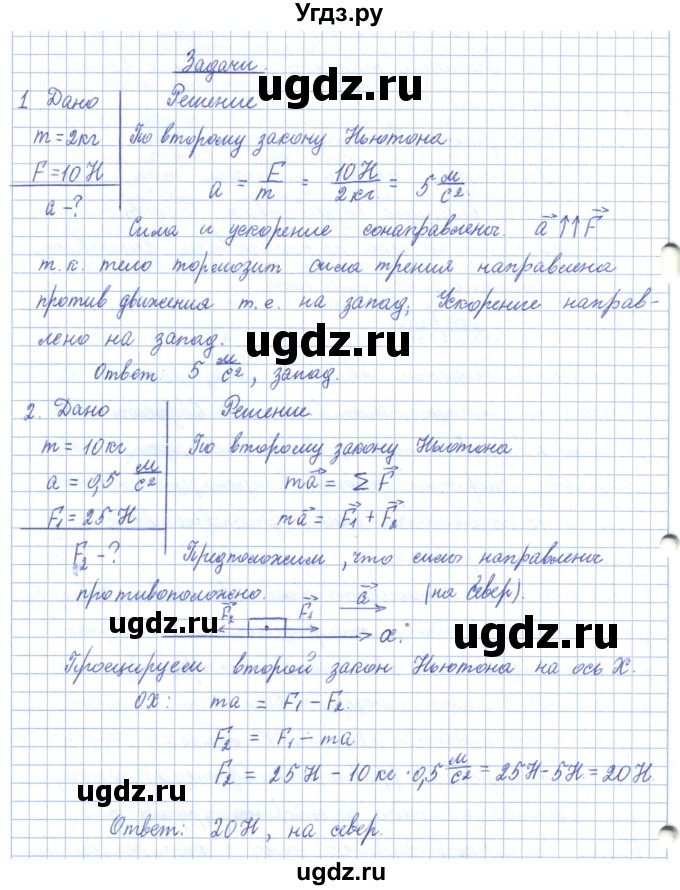 Угдз.ру
Задачи.
ugdz.ru
1. Дано Решение
m = 2кг По второму закону Ньютона
F = 10 Н a = F/m = 10 Н/2кг = 5 м/с².
a - ?
ugdz.ru
Сила и ускорение сонаправлены. a⃗ ↑↑ F⃗
т.к. тело тормозит сила трения направлена
против движения т.е. на запад; Ускорение направ-
лено на запад.
ugdz.ru
Ответ: 5 м/с², запад.
2. Дано Решение
m = 10кг По второму закону Ньютона
a = 0,5 м/с² ma⃗ = Σ F⃗
F₁ = 25 Н ma⃗ = F⃗₁ + F⃗₂
ugdz.ru
F₂ - ? Предположим, что силы направлены
противоположено. (на север).
F⃗₂ F⃗₁ a⃗ x.
ugdz.ru ugdz.ru
Проецируем второй закон Ньютона на ось X.
OX: ma = F₁ - F₂
F₂ = F₁ - ma
F₂ = 25 Н - 10 кг · 0,5 м/с² = 25 Н - 5 Н = 20 Н.
ugdz.ru ugdz.ru
Ответ: 20 Н, на север.
ugdz.ru